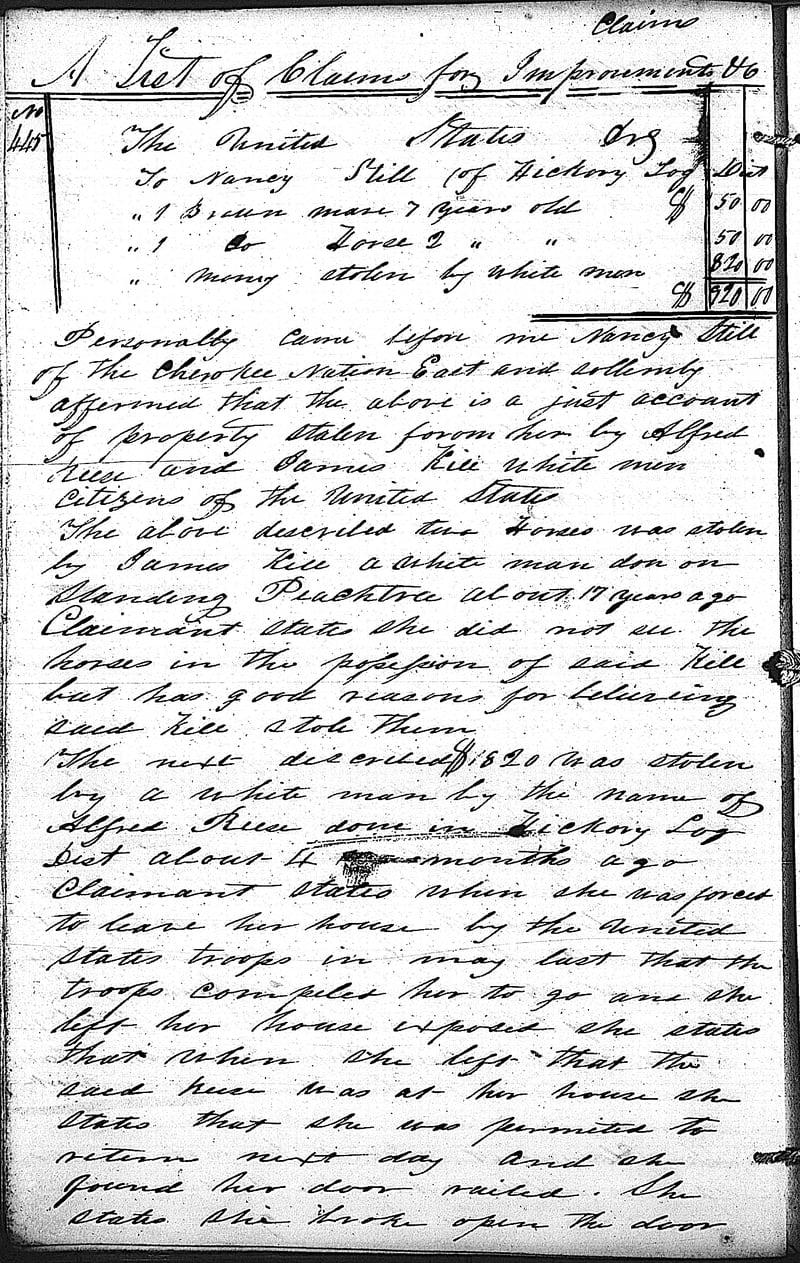 Claims
A List of Claims for Improvements &c
No
445
The United States Drs
To Nancy Still (of Hickory Log Dist
" 1 Brown mare 7 years old $ 50 00
" 1 do Horse 2 " " 50 00
" money stolen by white men 820 00
$ 920 00
Personally came before me Nancy Still
of the Cherokee Nation East and sollemly
affermed that the above is a just account
of property stolen forom her by Alfred
Reese and James Kell white men
Citizens of the United States
The above descrebed two Horses was stolen
by James Kell a white man don on
Standing Peachtree about 17 years ago
Claimant states she did not see the
horses in the possession of said Kell
but has good reasons for believeing
said Kell stole them
The next descrebed $1820 was stolen
by a white man by the name of
Alfred Reese done in Hickory Log
Dist about 4 months ago
Claimant states when she was forced
to leave her house by the United
States troops in may last that the
troops compeled her to go and she
left her house exposed she states
that when she left that the
said Reese was at her house she
states that she was permited to
return next day and she
found her door nailed. She
states she broke open the door